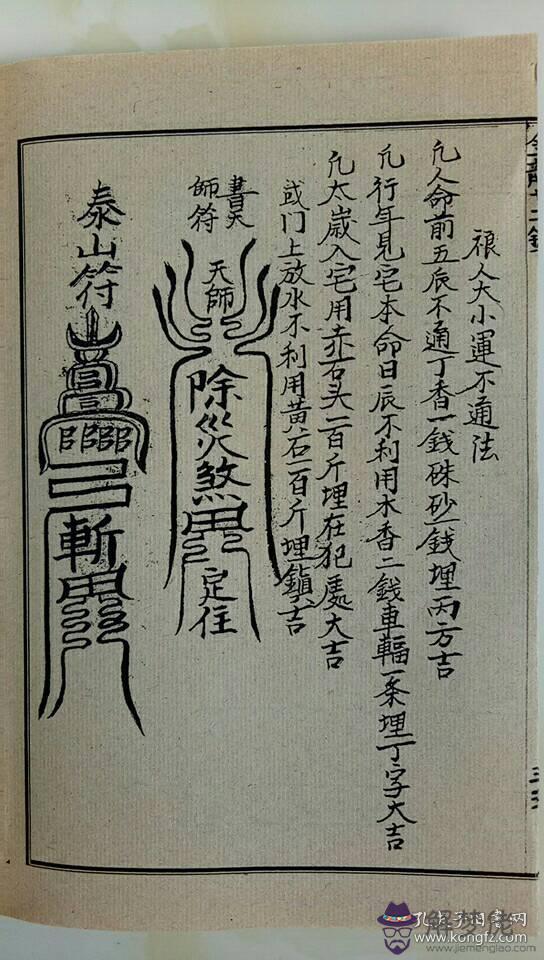 禳人大小運不通法
凢人命前五辰不通丁香一錢硃砂一錢埋丙方吉
凢行年見宅本命日辰不利用木香二錢車輻一条埋丁字大吉
凢太歲入宅用赤石头一百斤埋在犯處大吉
或门上放水不利用黄石一百斤埋鎮吉
書天
師符
天師
除災煞
定住
泰山符
斬
孔夫子旧书网
www.kongfz.com
解梦佬
www.jiemenglao.com